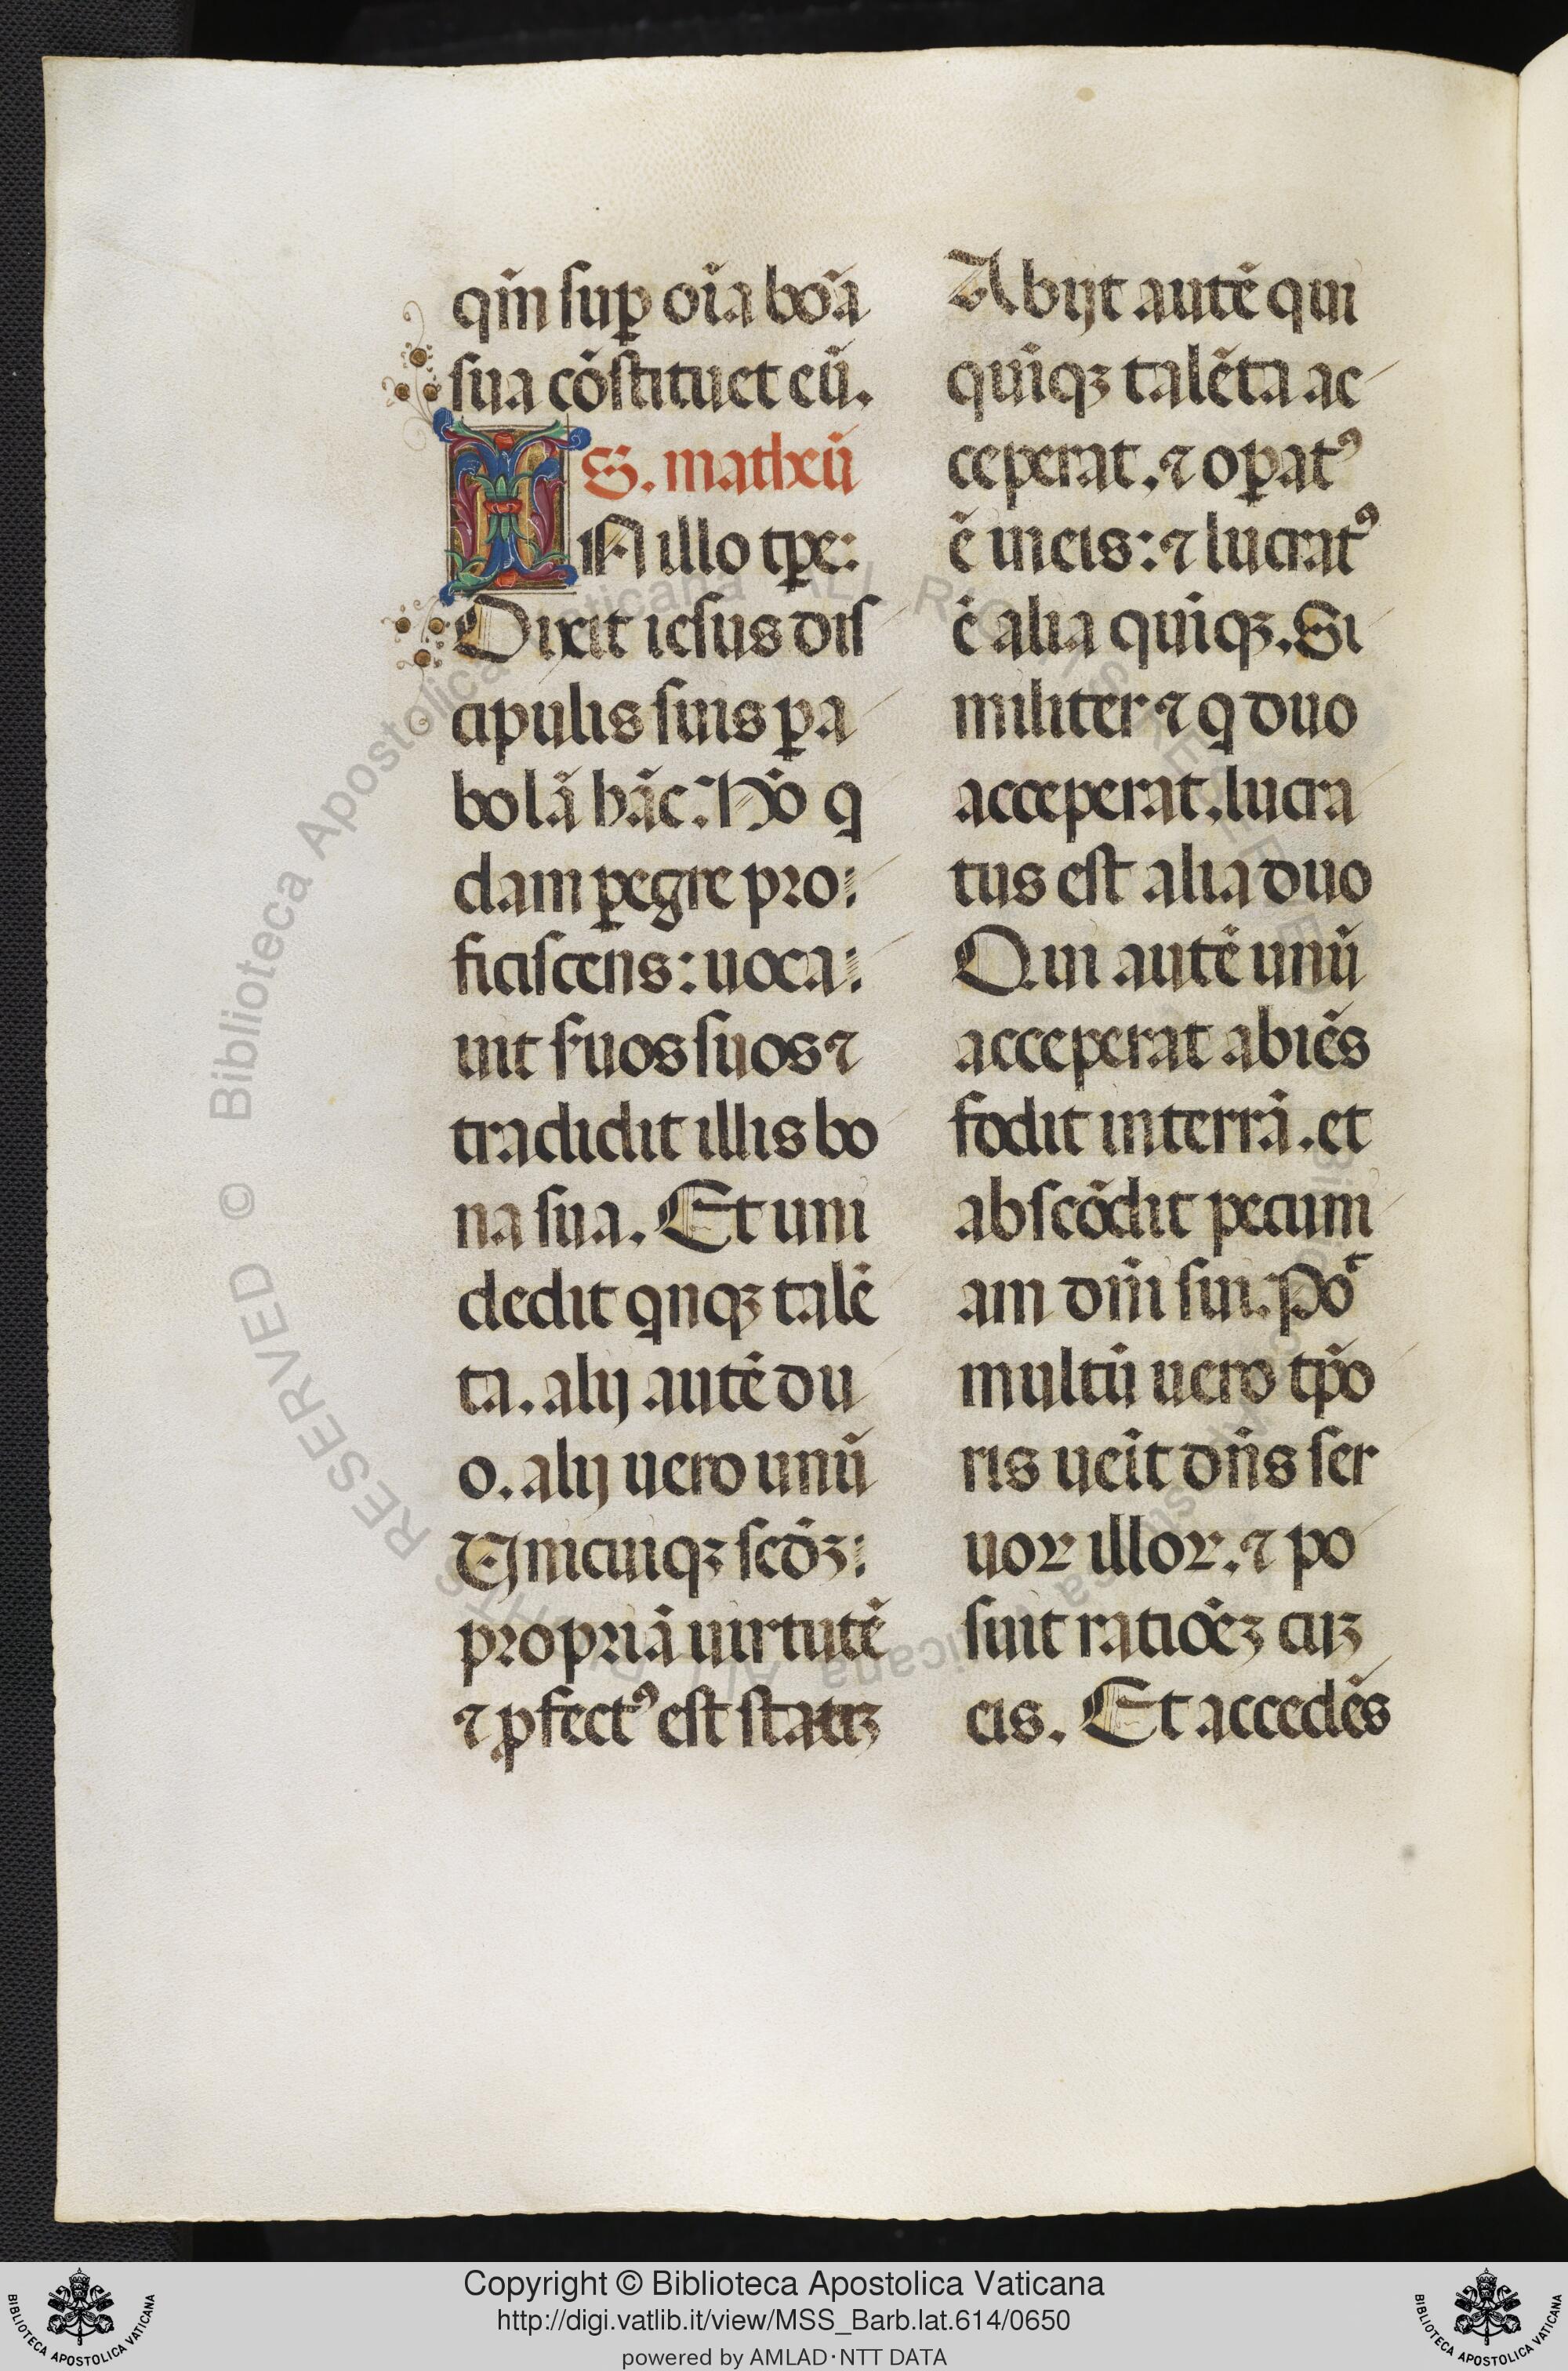 qm̄ suꝑ oı̄a bōa
sua cōstituet eū.
S. matheū
IN illo tꝑe:
Dixit iesus dis
cipulis suis ꝑa
bolā hāc. Hō q
dam ꝑegre pro:
ficiscens: uoca:
uit s̄uos suos ⁊
tradidit illis bo
na sua. Et uni
dedit qnqꝫ talē
ta. alij autē du
o. alij uero unū
Unicuiqꝫ scd̄ꝫ:
propriā uirtutē
⁊ ꝓfectꝰ est statiꝫ
Abijt autē qui
quīqꝫ talēta ac
ceperat. ⁊ oꝑatꝰ
ē in eis: ⁊ lucratꝰ
ē alia quīqꝫ. Si
militer ⁊ q duo
acceperat. lucra
tus est alia duo
Qui autē unū
acceperat abiēs
fodit in terrā. et
abscōdit pecuni
am dn̄i sui. Po᷒
multū uero tp̄o
ris ueīt dn̄s ser
uoꝝ illoꝝ. ⁊ po
suit ratiōeꝫ cuꝫ
eis. Et accedēs
© Biblioteca Apostolica Vaticana ALL RIGHTS RESERVED
Copyright © Biblioteca Apostolica Vaticana
http://digi.vatlib.it/view/MSS_Barb.lat.614/0650
powered by AMLAD·NTT DATA
BIBLIOTECA APOSTOLICA VATICANA
BIBLIOTECA APOSTOLICA VATICANA